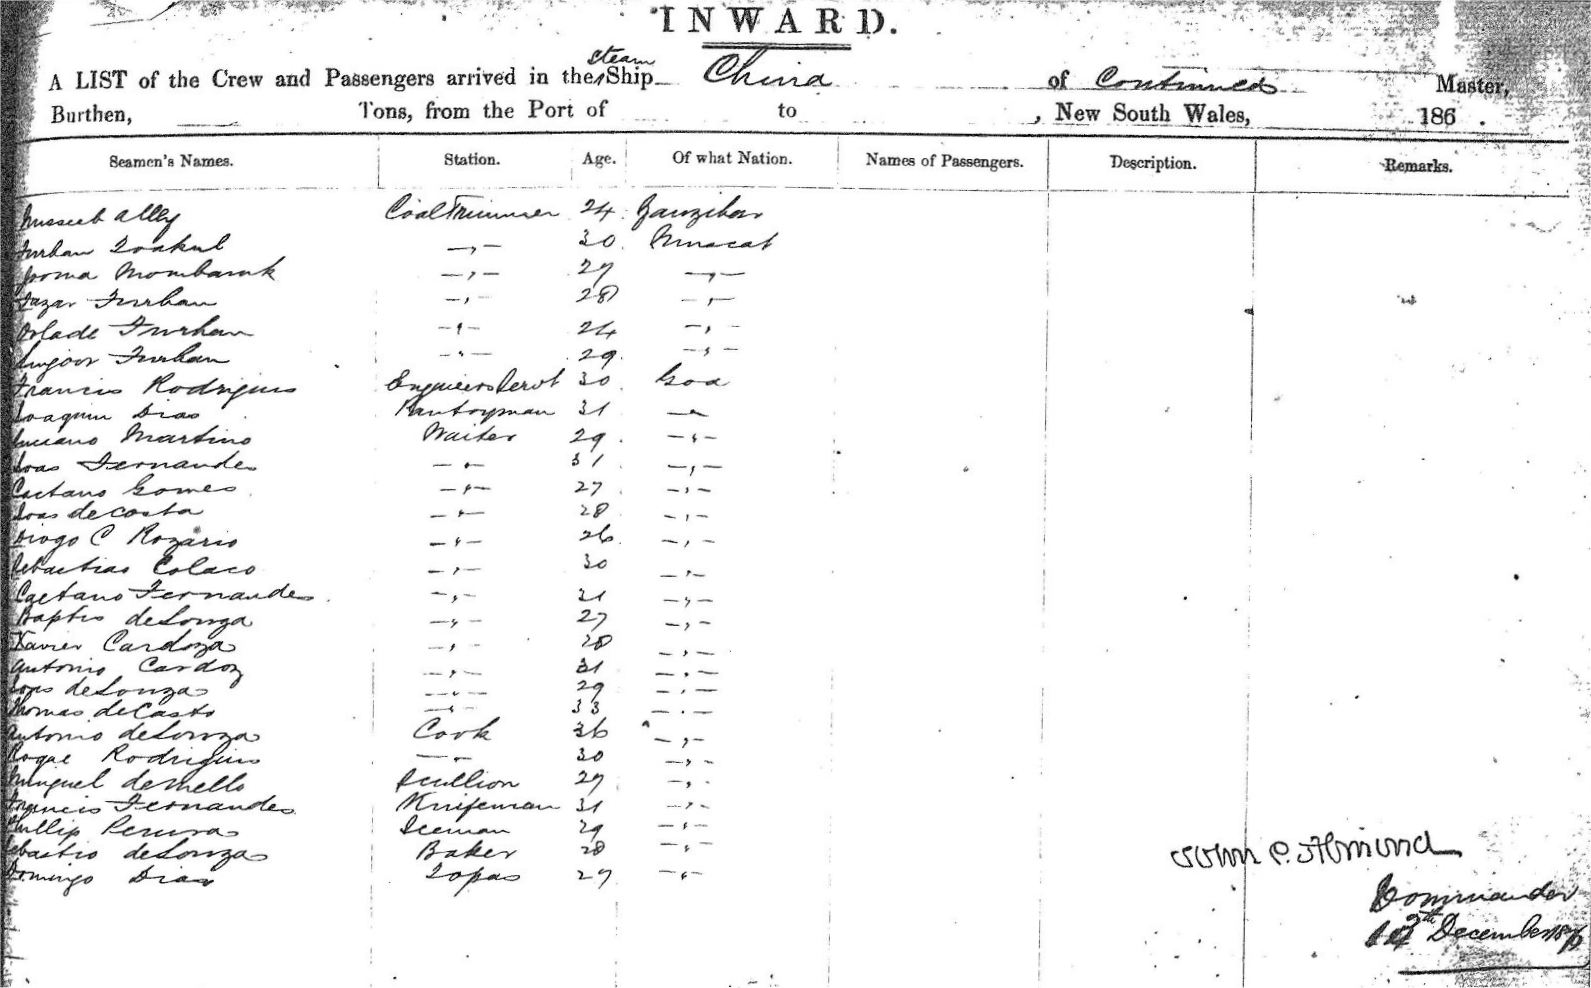 INWARD.
A LIST of the Crew and Passengers arrived in the steam Ship China of Continued Master,
Burthen, Tons, from the Port of to , New South Wales, 186 .
Seamen's Names. Station. Age. Of what Nation. Names of Passengers. Description. Remarks.
Ally Coal Trimmer 24 Zanzibar
Furhan 30 Muscat
Mombaruk —,,— 27 —,,—
Furhan —,,— 28 —,,—
Furhan —,,— 24 —,,—
Furhan —,,— 29 —,,—
Francis Rodriguis Engineers Servt 30 Goa
Joaquim Dias Pantryman 31 —,,—
Luciano Martino Waiter 29 —,,—
Joas Fernandes —,,— 31 —,,—
Caetano Gomes —,,— 27 —,,—
Joas de Costa —,,— 28 —,,—
Diogo C Rozario —,,— 26 —,,—
Sebastiao Colaco —,,— 30 —,,—
Caetano Fernandes —,,— 31 —,,—
Baptis de Souza —,,— 27 —,,—
Xavier Cardoza —,,— 28 —,,—
Antonio Cardoz —,,— 31 —,,—
de Souza —,,— 29 —,,—
Thomas de Casto —,,— 33 —,,—
Antonio de Souza Cook 36 —,,—
Roque Rodriguis —,,— 30 —,,—
Minguel de Mello Scullion 27 —,,—
Francis Fernandes Knifeman 31 —,,—
Phillip Perura Iceman 29 —,,—
Sebastio de Souza Baker 28 —,,—
Domingo Dias Topas 27 —,,—
John C. Almond
Commander
December